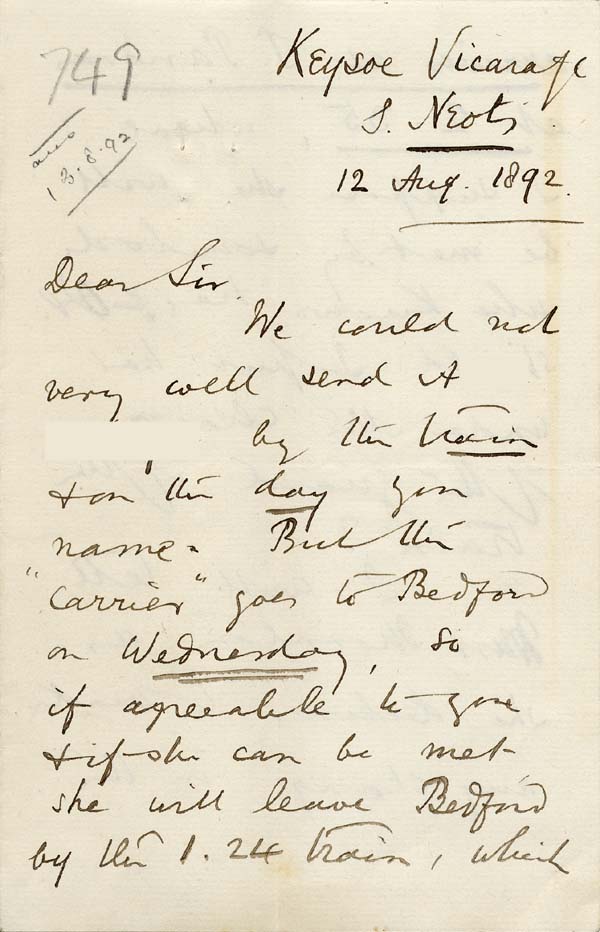 749
ans
13.8.92
Keysoe Vicarage
S. Neots
12 Aug. 1892.
Dear Sir.
We could not
very well send A
by the train
& on the day you
name. But the
"carrier" goes to Bedford
on Wednesday, so
if agreeable to you
& if she can be met
she will leave Bedford
by the 1.24 train, which